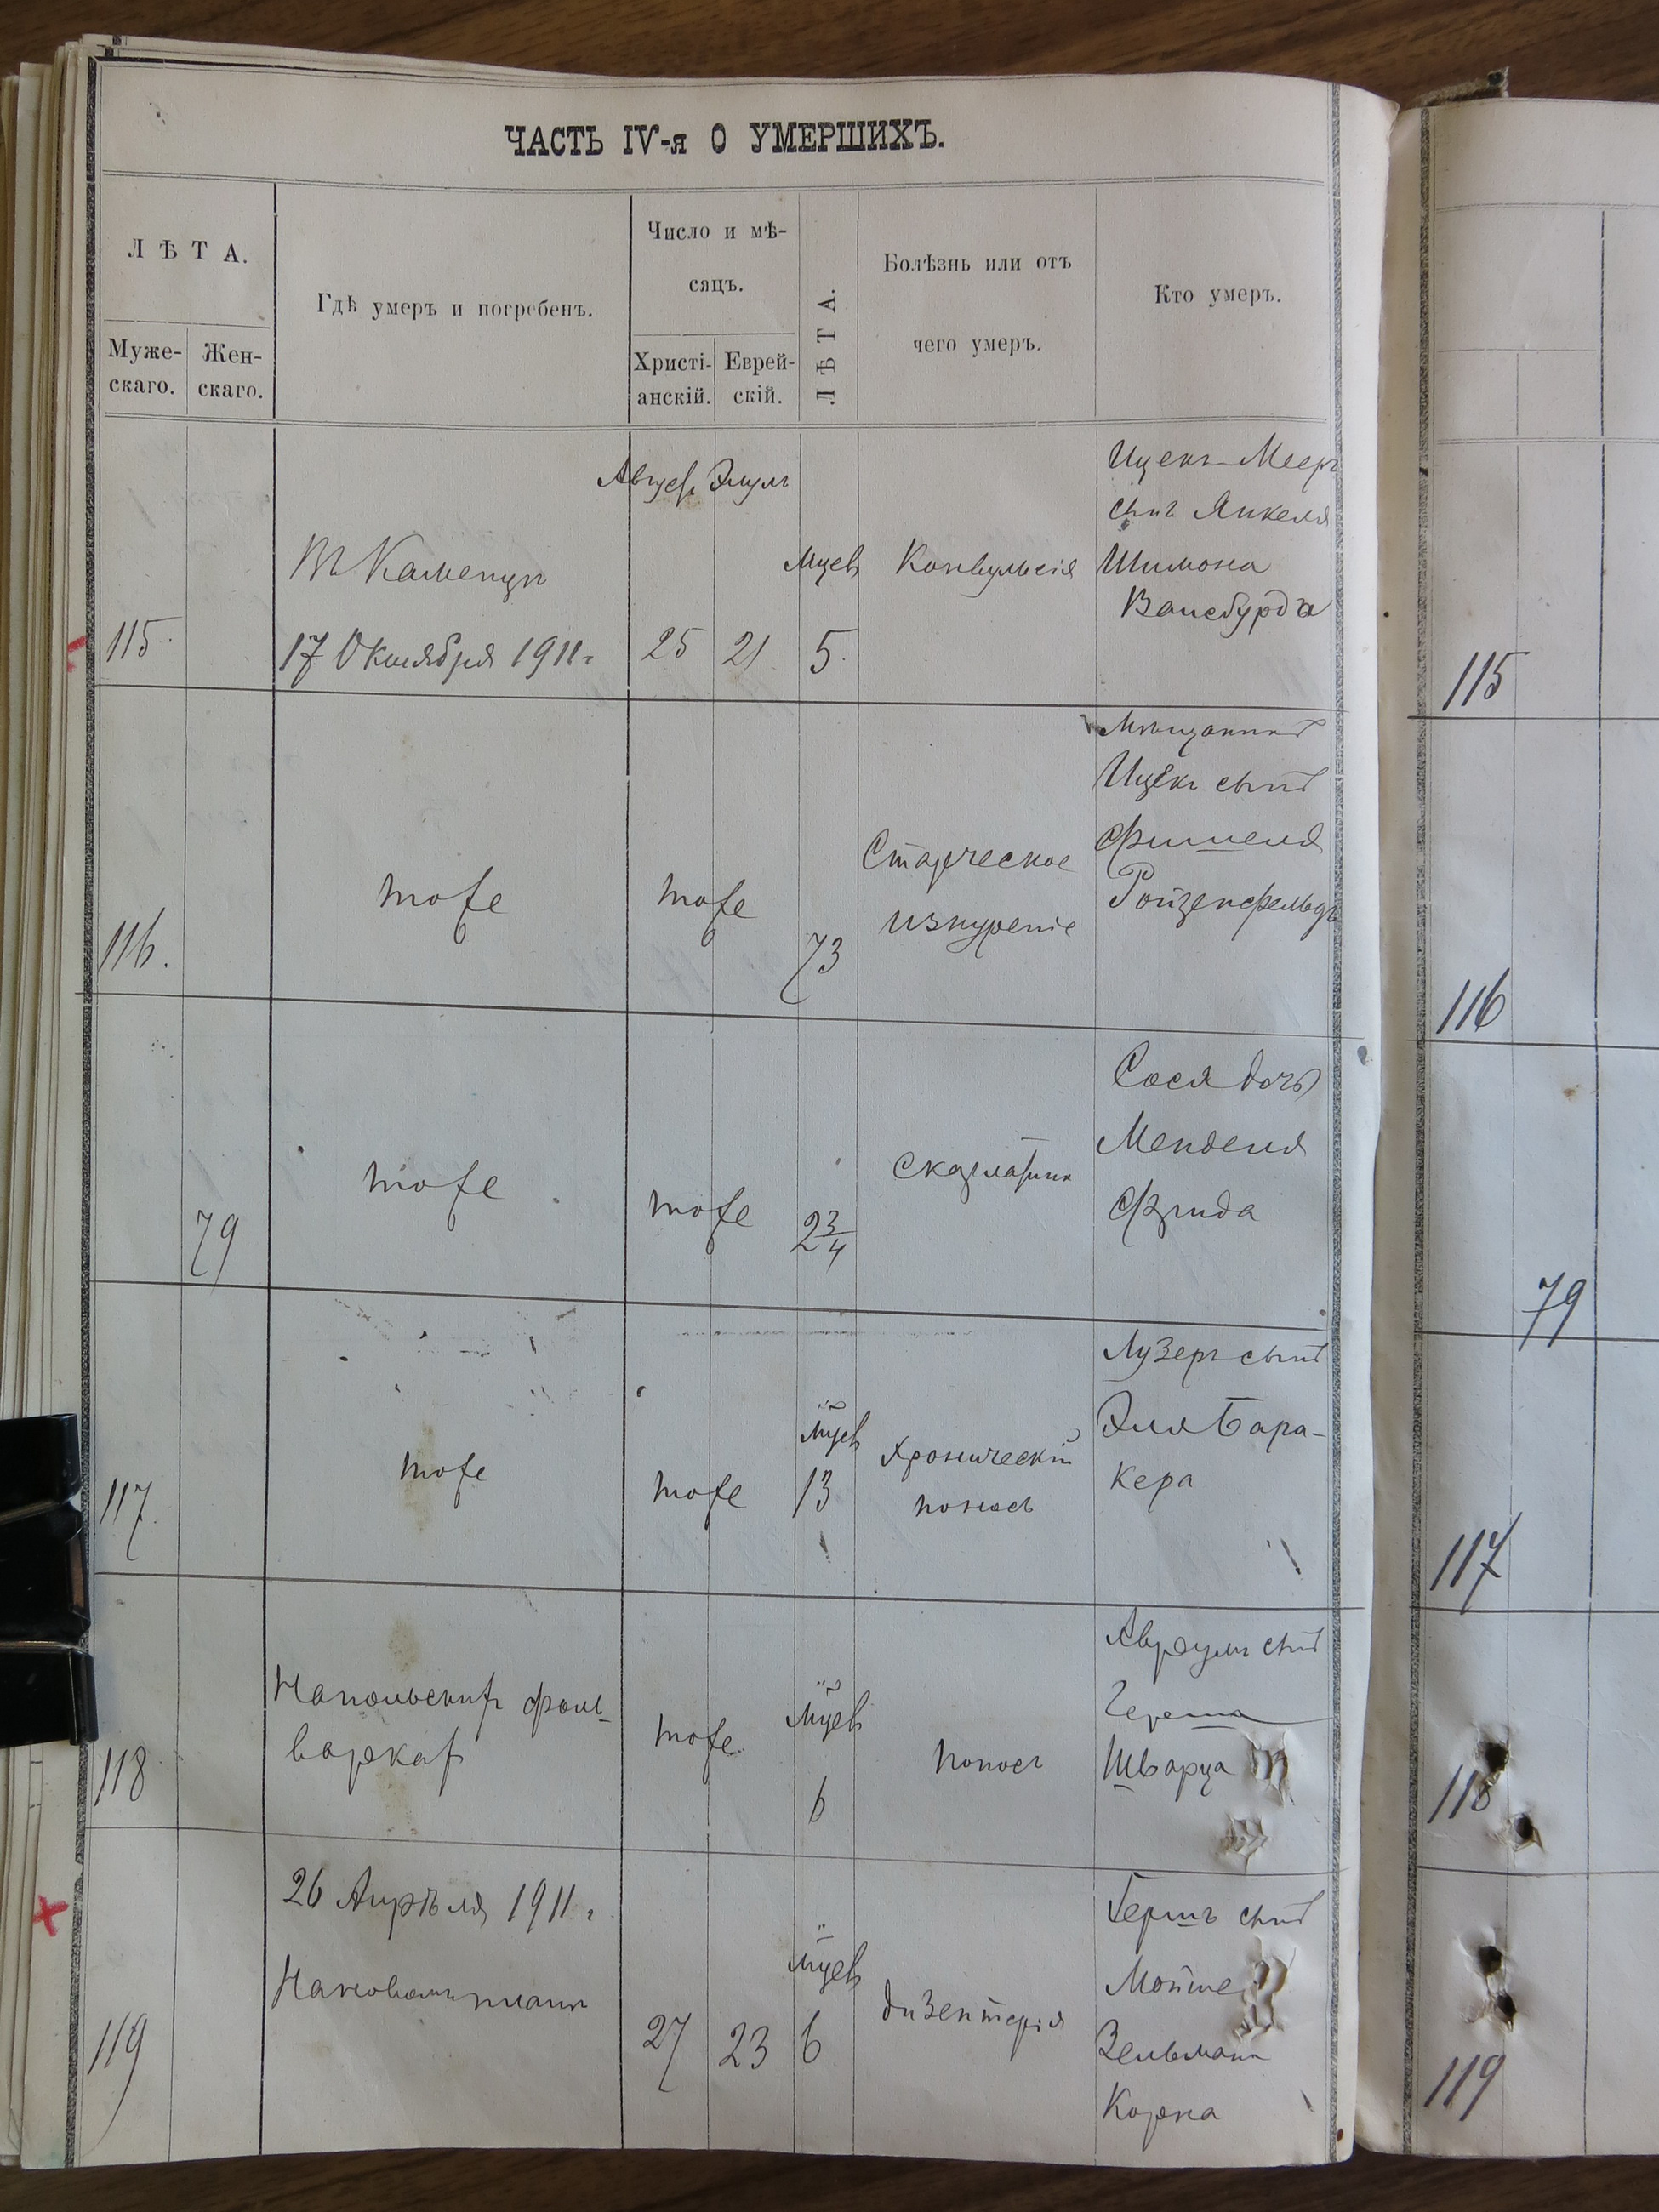 ЧАСТЬ IV-я О УМЕРШИХЪ.
ЛѢТА.
Муже-
скаго.
Жен-
скаго.
Гдѣ умеръ и погребенъ.
Число и мѣ-
сяцъ.
Христі-
анскій.
Еврей-
скій.
ЛѢТА.
Болѣзнь или отъ
чего умеръ.
Кто умеръ.
115.
Въ Каменцѣ
17 Октября 1911 г
Август Элулъ
25 21
Мцев
5.
Конвульсія
Ицекъ Мееръ
сынъ Янкеля
Шимона
Вансбурдъ
115
116.
тоже
тоже
73
Старческое
изнуреніе
Мѣщанинъ
Ицекъ сынъ
Фишеля
Ройзенфельдъ
116
79
тоже
тоже
2 3/4
Скарлатина
Сося дочь
Менделя
Фрида
79
117.
тоже
тоже
Мцев
13
Хроническій
поносъ
Лузеръ сынъ
Эля Бара-
кера
117
118
Напольскихъ фоль-
варкахъ
тоже
Мцев
6
Поносъ
Авраумъ сынъ
Герша
Шварца
118
119
26 Апрѣля 1911 г
На новомъ планѣ
27 23
Мцев
6
дизентерія
Гершъ сынъ
Мойше
Зельмана
Корна
119